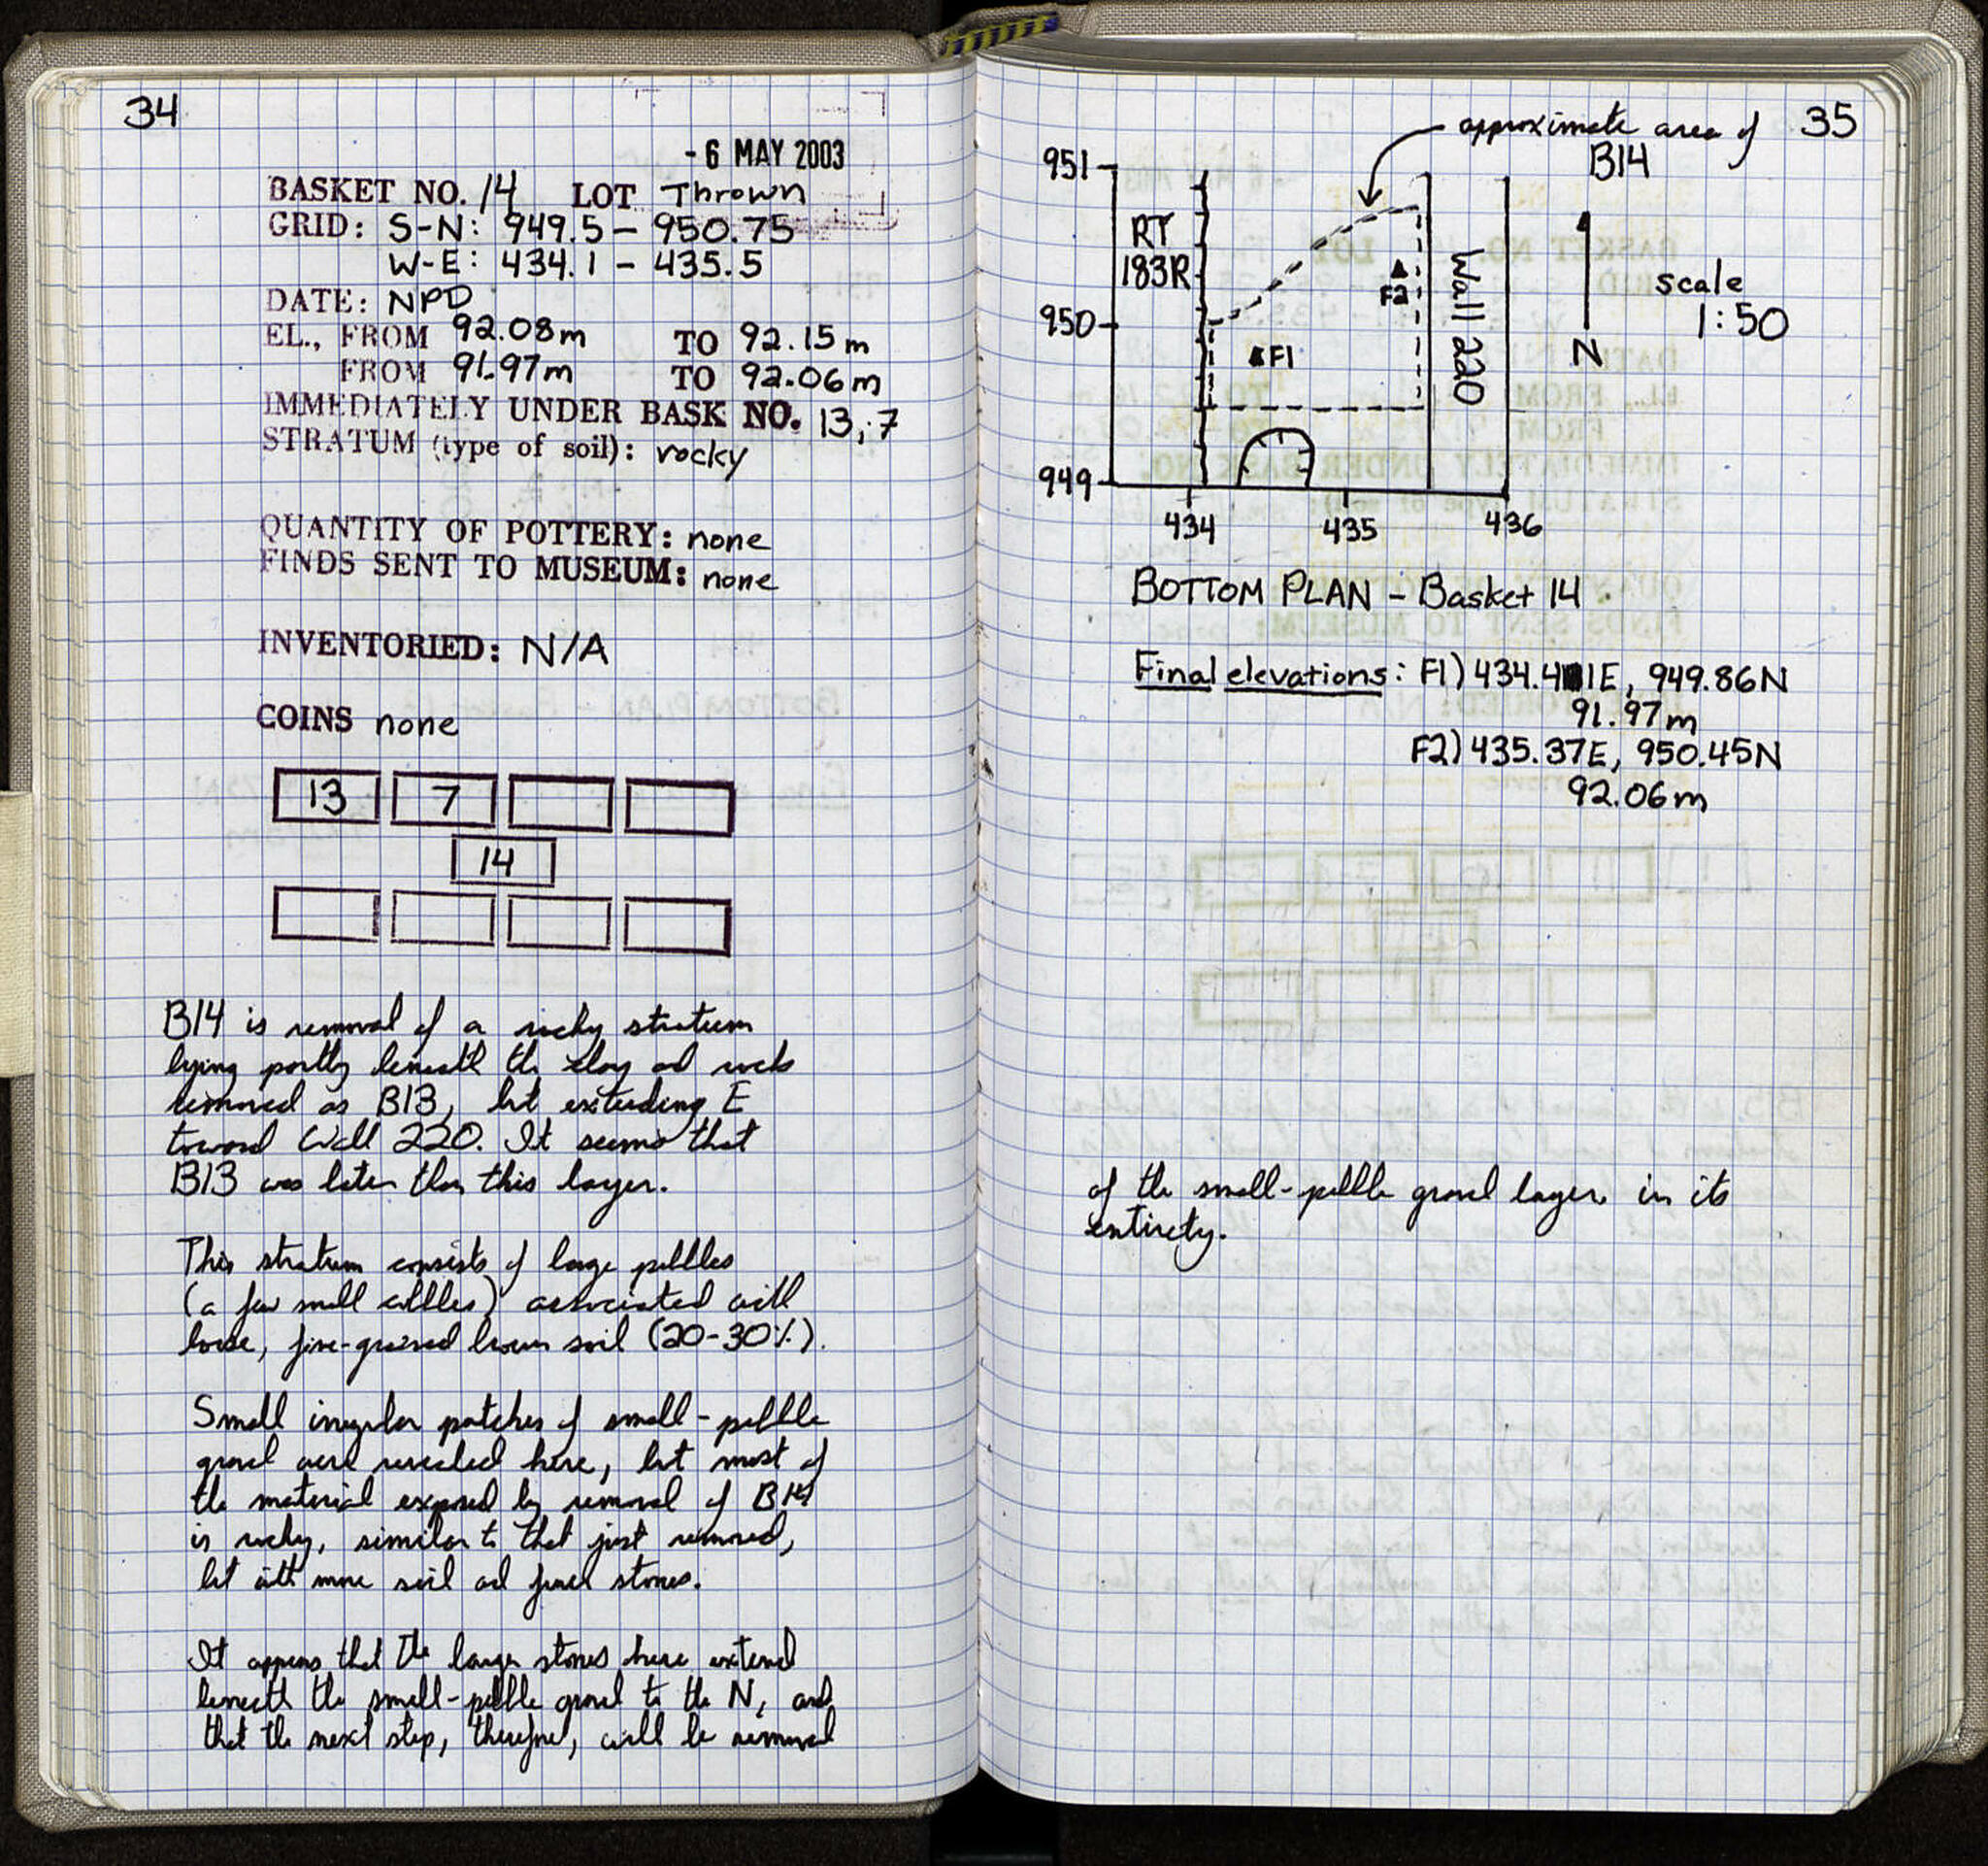 34
- 6 MAY 2003
BASKET NO. 14 LOT Thrown
GRID: S-N: 949.5 - 950.75
W-E: 434.1 - 435.5
DATE: NPD
EL., FROM 92.08m TO 92.15m
FROM 91.97m TO 92.06m
IMMEDIATELY UNDER BASK NO. 13, 7
STRATUM (type of soil): rocky
QUANTITY OF POTTERY: none
FINDS SENT TO MUSEUM: none
INVENTORIED: N/A
COINS none
13 7
14
B14 is removal of a rocky stratum
lying partly beneath the clay and rocks
removed as B13, but extending E
toward Wall 220. It seems that
B13 was later than this layer.
This stratum consists of large pebbles
(a few small cobbles) associated with
loose, fine-grained brown soil (20-30%).
Small irregular patches of small-pebble
gravel were revealed here, but most of
the material exposed by removal of B14
is rocky, similar to that just removed,
but with more soil and fewer stones.
It appears that the larger stones here extend
beneath the small-pebble gravel to the N, and
that the next step, therefore, will be removal
35
approximate area of
B14
951
RT
183R
950
949
F2
F1
Wall 220
N
scale
1:50
434 435 436
BOTTOM PLAN - Basket 14
Final elevations: F1) 434.41E, 949.86N
91.97m
F2) 435.37E, 950.45N
92.06m
of the small-pebble gravel layer in its
entirety.